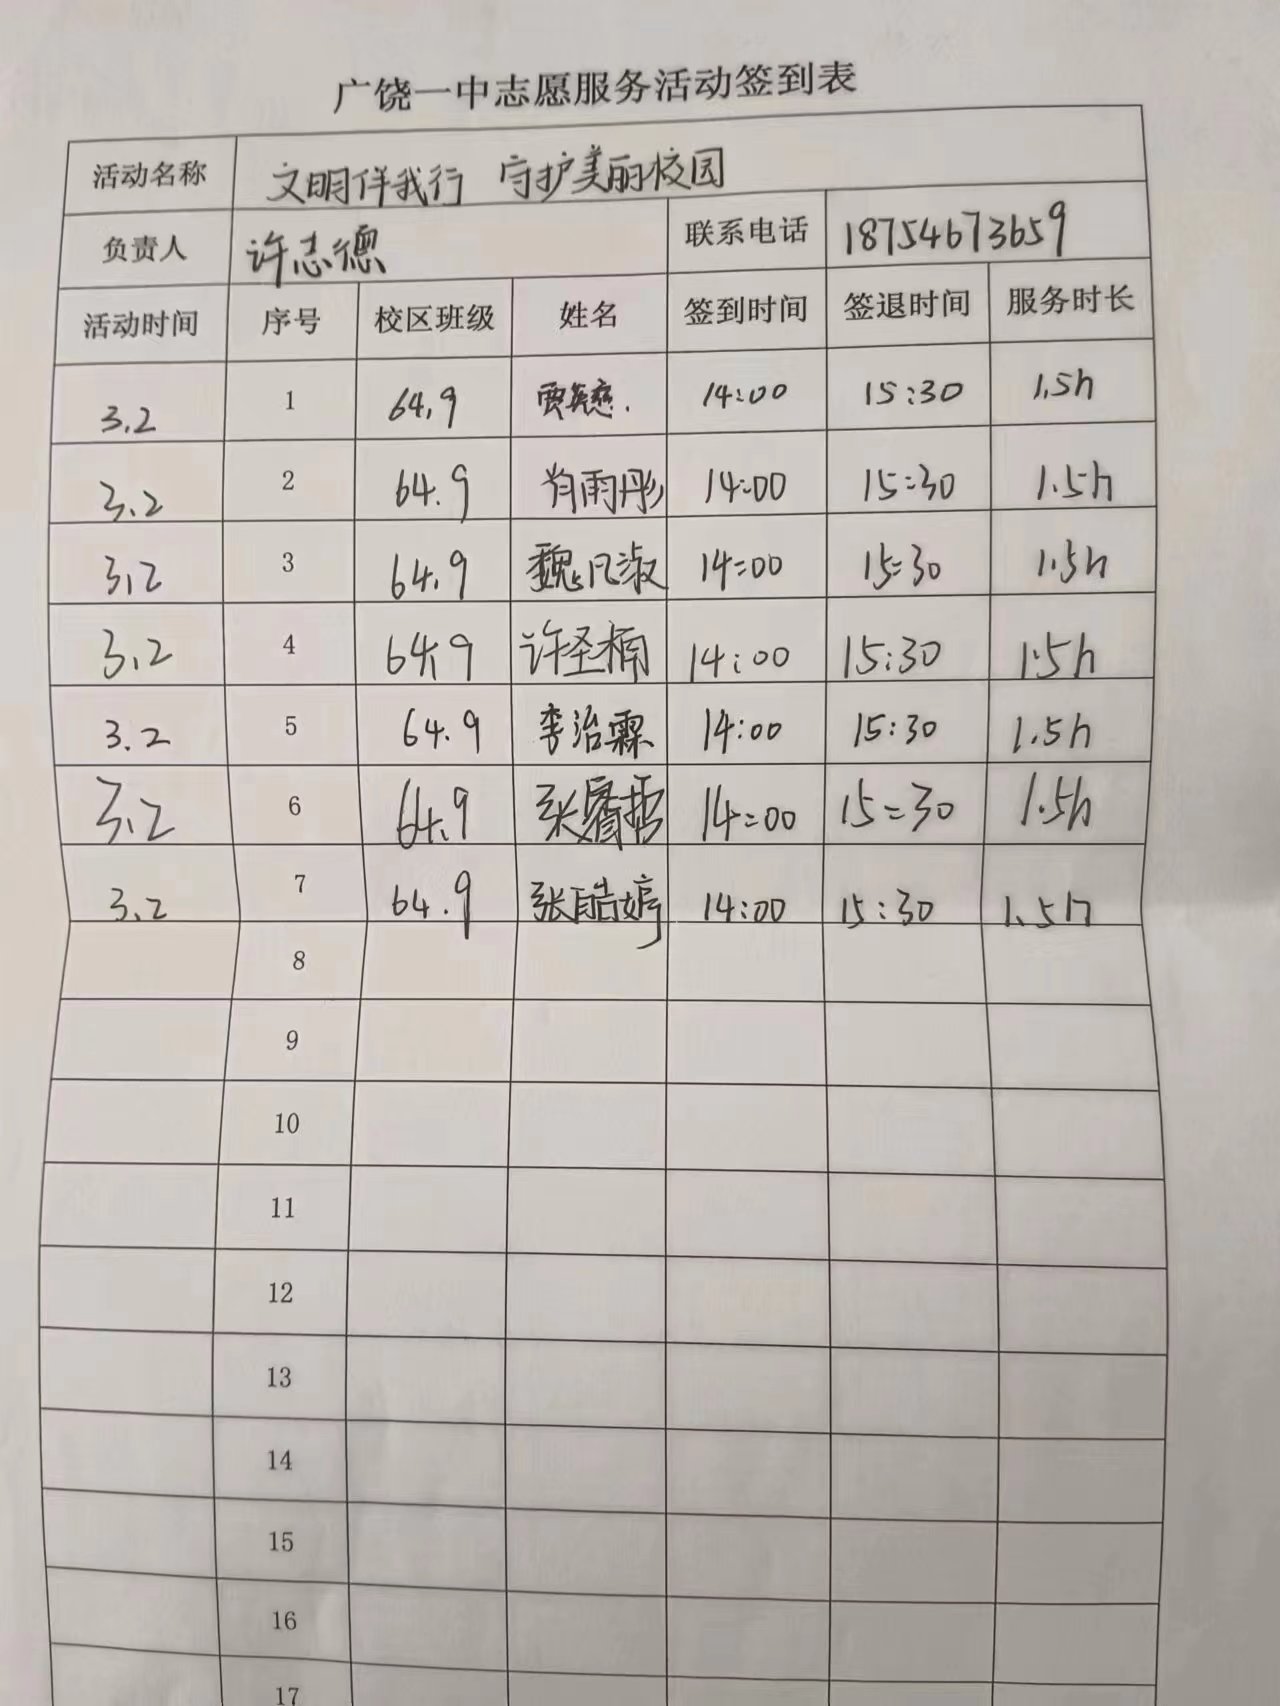 广饶一中志愿服务活动签到表
活动名称 文明伴我行 守护美丽校园
负责人 许志德 联系电话 18754673659
活动时间 序号 校区班级 姓名 签到时间 签退时间 服务时长
3.2 1 64.9 贾英慈. 14:00 15:30 1.5h
3.2 2 64.9 肖雨彤 14:00 15:30 1.5h
3.2 3 64.9 魏凡淑 14:00 15:30 1.5h
3.2 4 64.9 许圣楠 14:00 15:30 1.5h
3.2 5 64.9 李治霖 14:00 15:30 1.5h
3.2 6 64.9 张睿哲 14:00 15:30 1.5h
3.2 7 64.9 张皓婷 14:00 15:30 1.5h
8
9
10
11
12
13
14
15
16
17